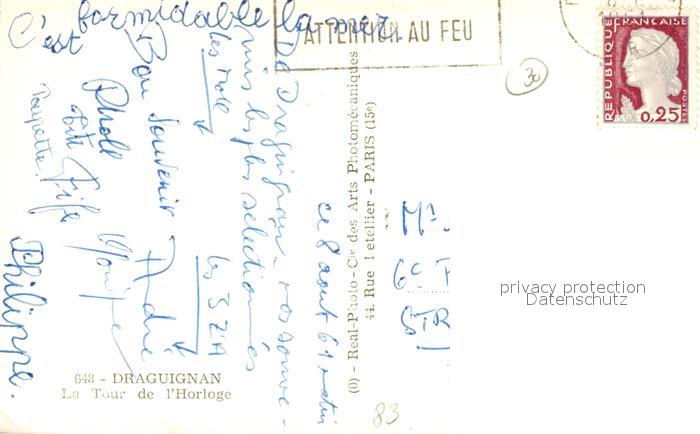 C'est formidable la mer.
ATTENTION AU FEU
RÉPUBLIQUE FRANÇAISE
POSTES
0,25
30
De Draguignan - nos souve-
nirs les plus sélectionnés
les
les 3
Bon souvenir André
Fifi
Poupette
Philippe.
ce 8 août 61 matin
(0) - Real-Photo - Cie des Arts Photomécaniques
44, Rue Letellier - PARIS (15e)
643 - DRAGUIGNAN
La Tour de l'Horloge
83
privacy protection
Datenschutz